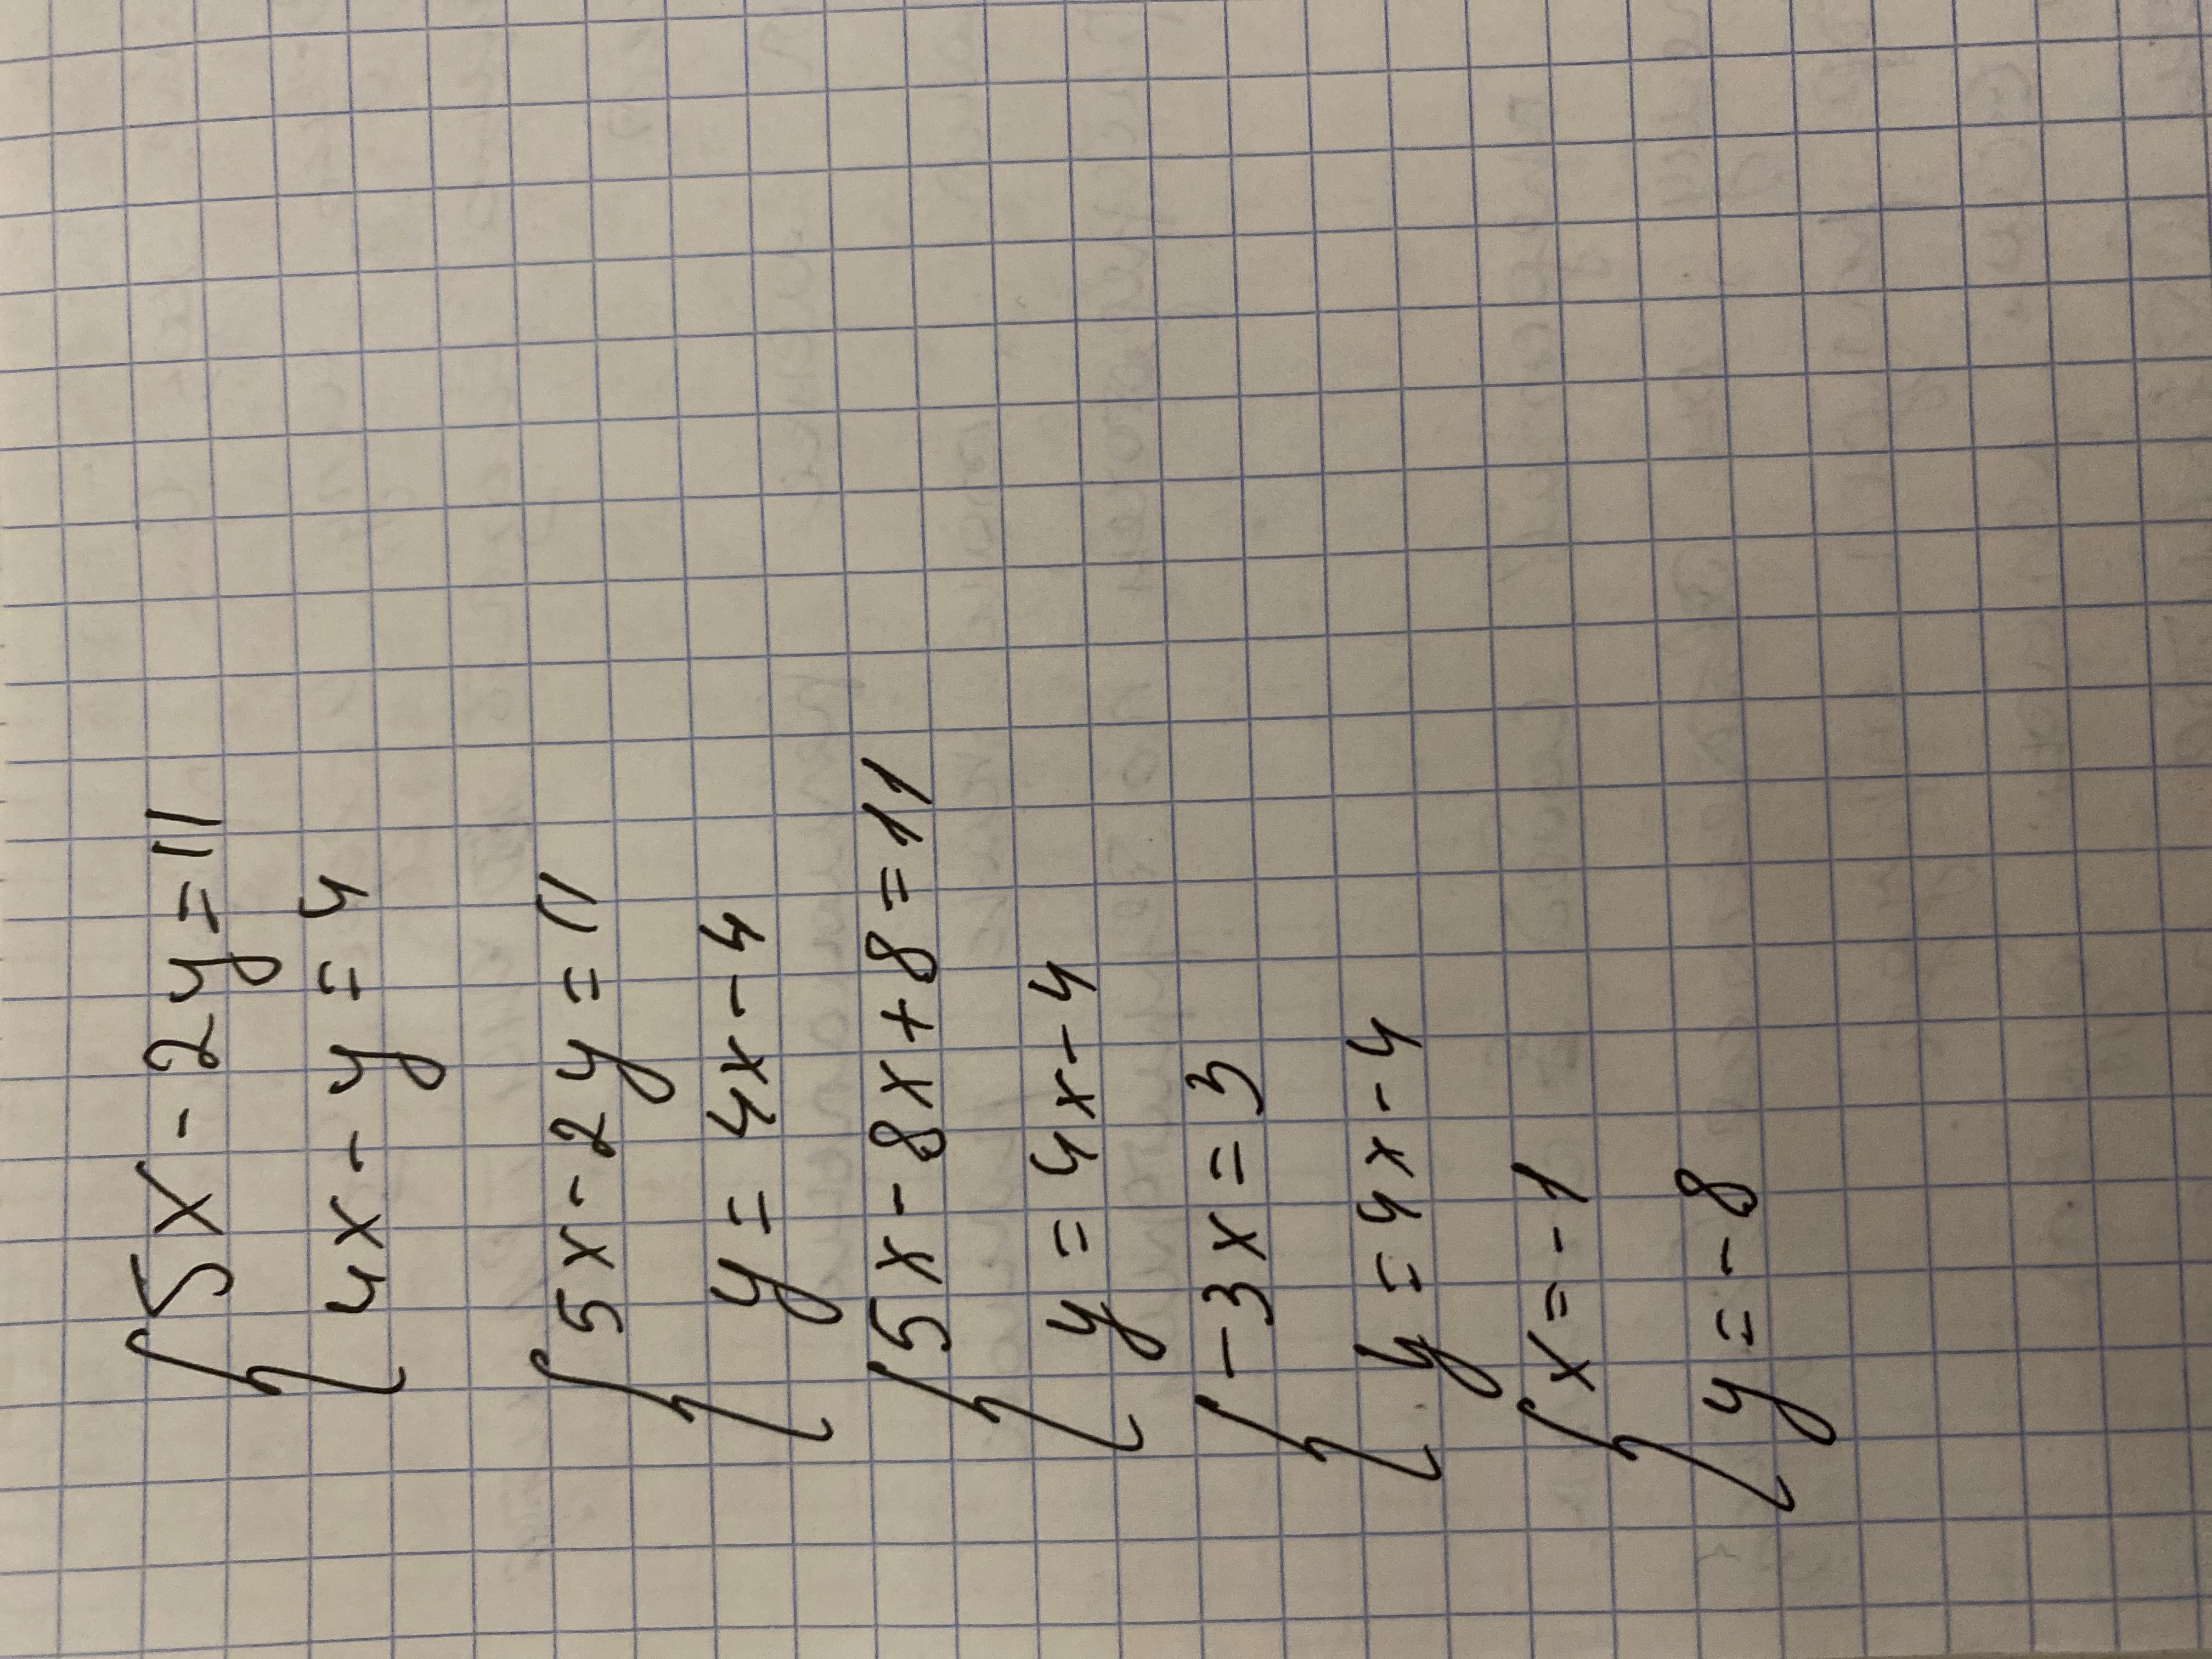 5x - 2y = 11
4x - y = 4
5x - 2y = 11
y = 4x - 4
5x - 8x + 8 = 11
y = 4x - 4
-3x = 3
y = 4x - 4
x = -1
y = -8